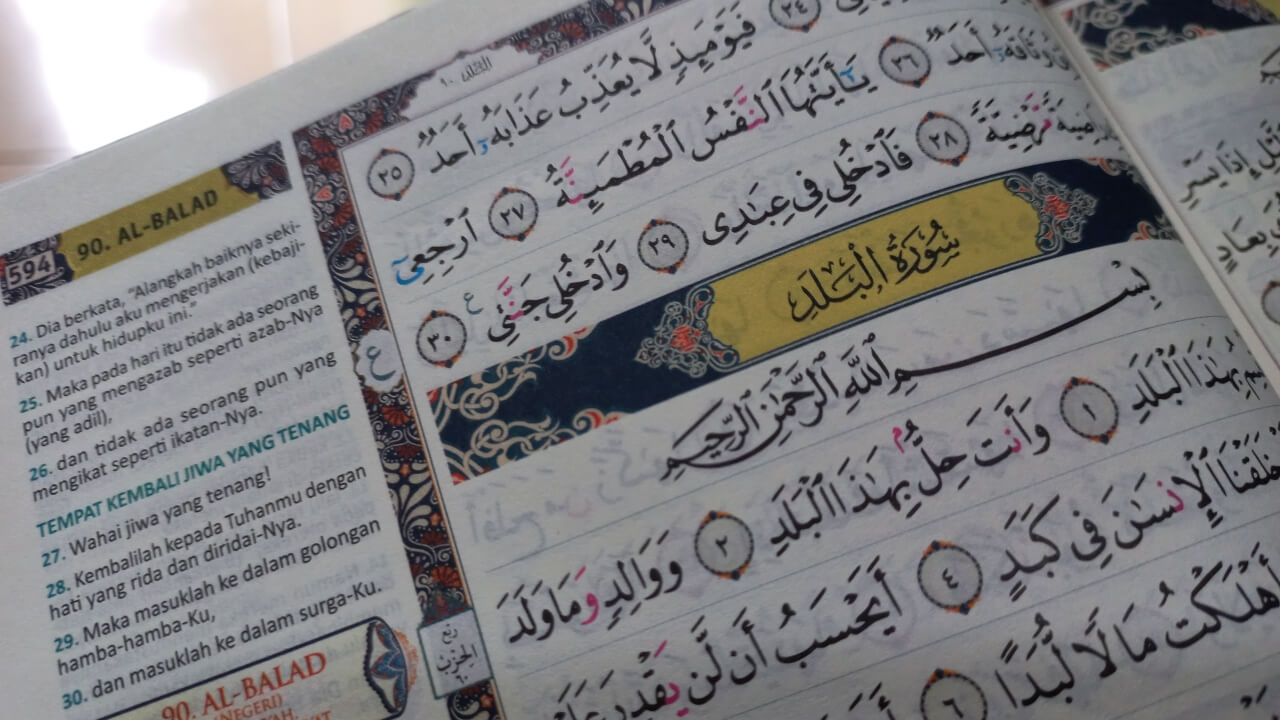 594 90. AL-BALAD
24. Dia berkata, "Alangkah baiknya seki-
ranya dahulu aku mengerjakan (kebaji-
kan) untuk hidupku ini."
25. Maka pada hari itu tidak ada seorang
pun yang mengazab seperti azab-Nya
(yang adil),
26. dan tidak ada seorang pun yang
mengikat seperti ikatan-Nya.
TEMPAT KEMBALI JIWA YANG TENANG
27. Wahai jiwa yang tenang!
28. Kembalilah kepada Tuhanmu dengan
hati yang rida dan diridai-Nya.
29. Maka masuklah ke dalam golongan
hamba-hamba-Ku,
30. dan masuklah ke dalam surga-Ku.
90. AL-BALAD
(NEGERI)
٢٤ فَيَوْمَئِذٍ لَّا يُعَذِّبُ عَذَابَهُۥٓ أَحَدٌ ٢٥
أَحَدٌ ٢٦ يَـٰٓأَيَّتُهَا ٱلنَّفْسُ ٱلْمُطْمَئِنَّةُ ٢٧ ٱرْجِعِىٓ
مَّرْضِيَّةً ٢٨ فَٱدْخُلِى فِى عِبَـٰدِى ٢٩ وَٱدْخُلِى جَنَّتِى ٣٠
ع
سُورَةُ الْبَلَدِ
بِسْمِ ٱللَّهِ ٱلرَّحْمَـٰنِ ٱلرَّحِيمِ
بِهَـٰذَا ٱلْبَلَدِ ١ وَأَنتَ حِلٌّۢ بِهَـٰذَا ٱلْبَلَدِ ٢ وَوَالِدٍ وَمَا وَلَدَ
خَلَقْنَا ٱلْإِنسَـٰنَ فِى كَبَدٍ ٤ أَيَحْسَبُ أَن لَّن يَقْدِرَ
أَهْلَكْتُ مَالًا لُّبَدًا ٦
ربع
الحزب
٦٠
إِذَا يَسْرِ
بِعَادٍ